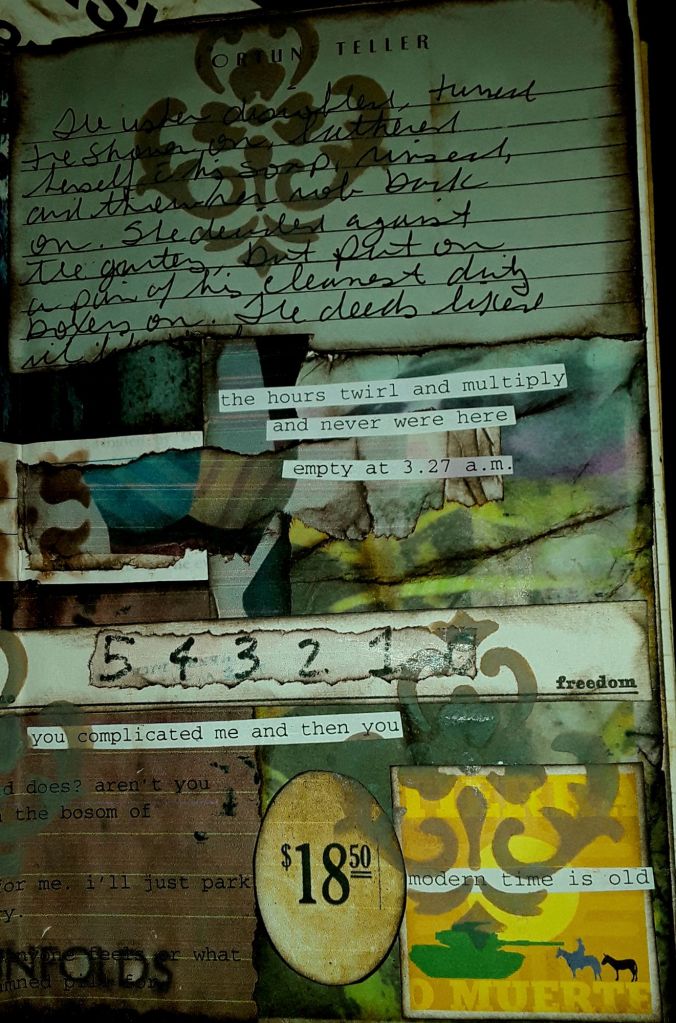 FORTUNE TELLER
turned
the shower on, lathered
herself his soap, rinsed,
and then her rob back
on. She decided against
the garter, but put on
a pair of his cleanest dirty
boxers on. He deeds
the hours twirl and multiply
and never were here
empty at 3.27 a.m.
5 4 3 2 1
freedom
you complicated me and then you
d does? aren't you
the bosom of
for me. i'll just park
y.
or what
NFOLDS
$18.50
modern time is old
O MUERTE